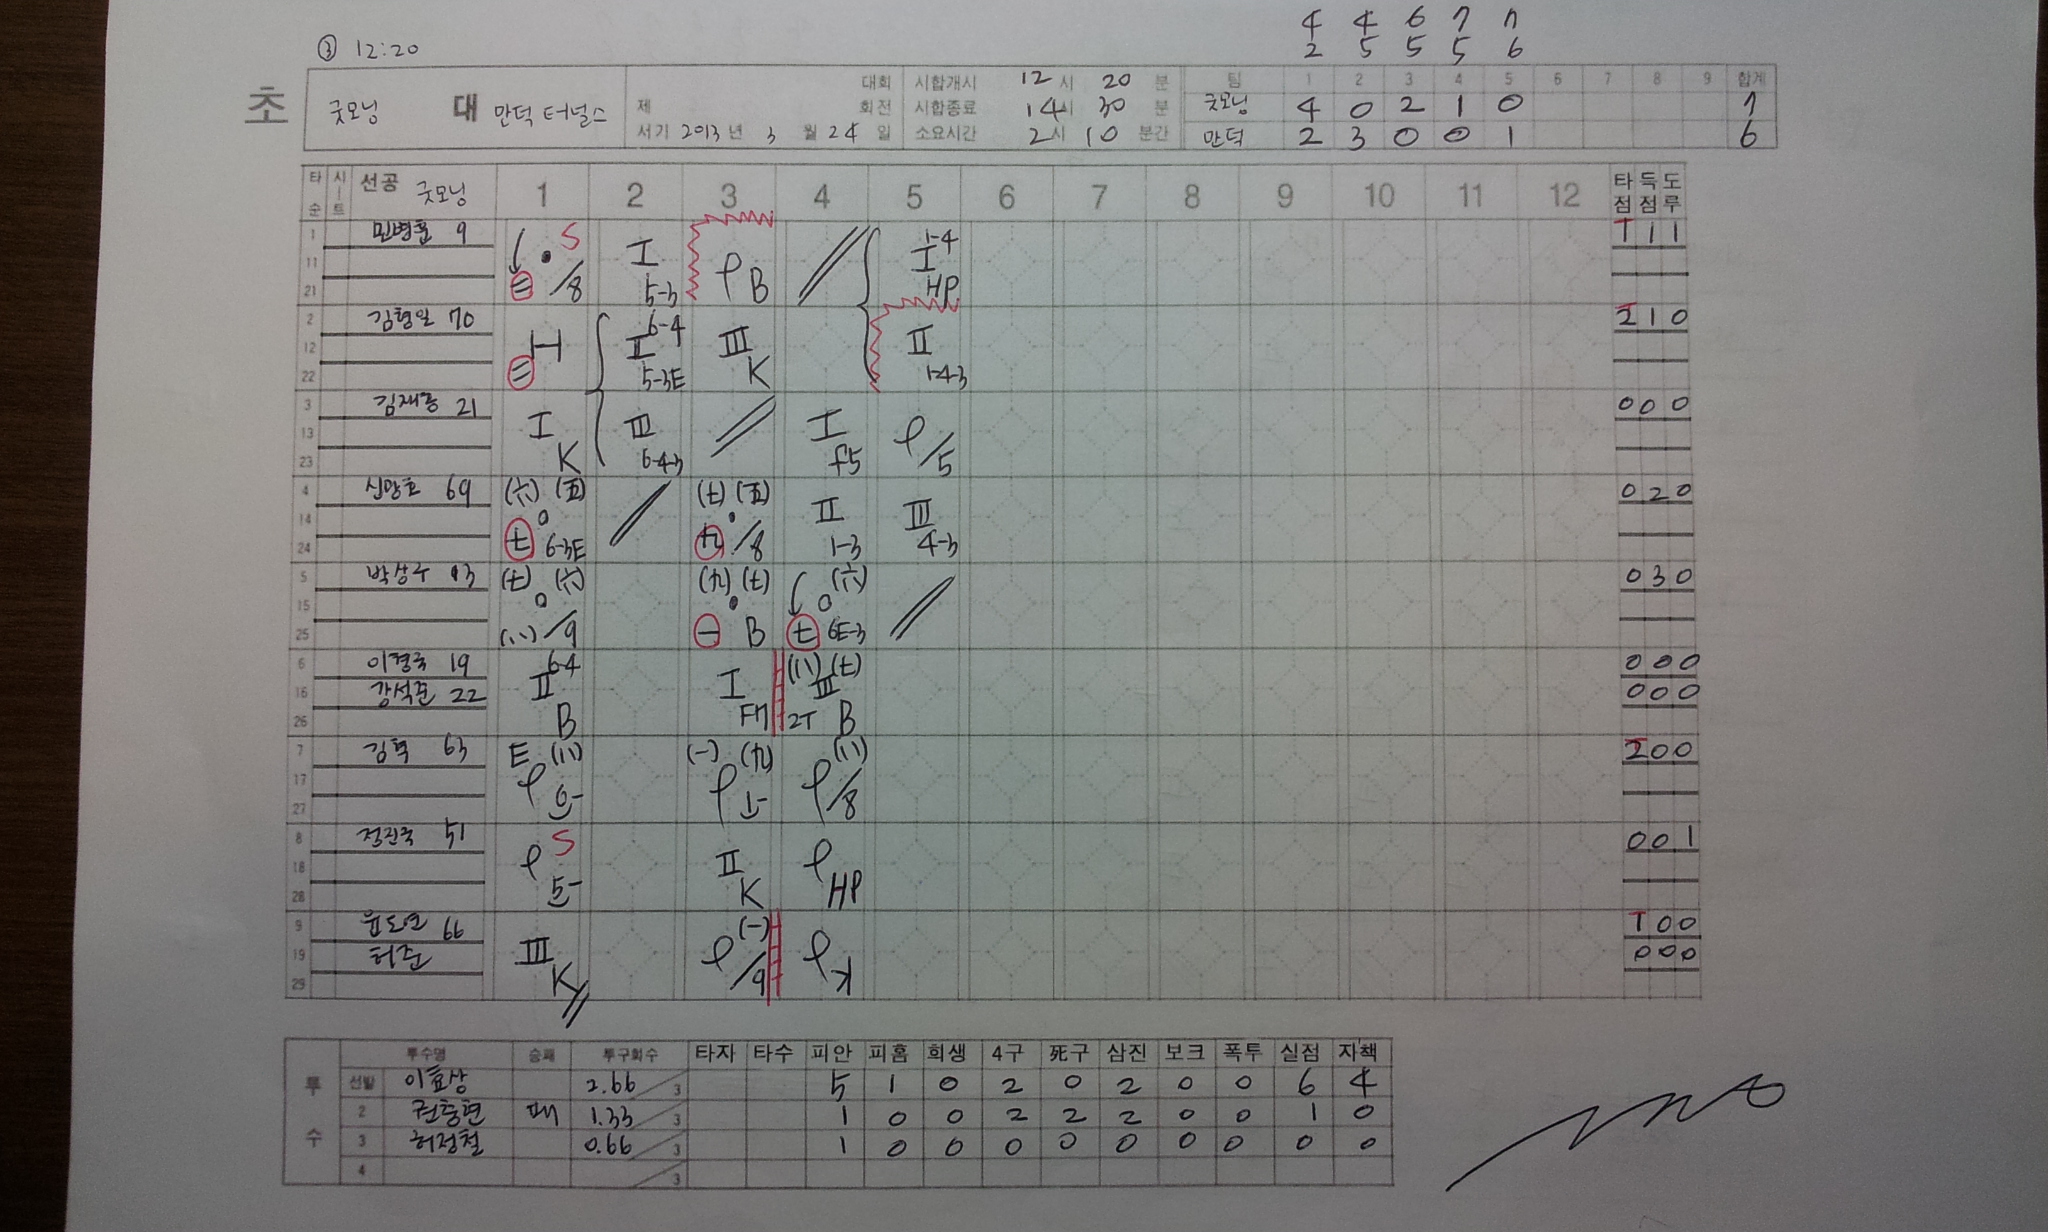 4 4 6 7 7
③ 12:20
2 5 5 5 6
초 굿모닝 대 만덕 터널스
제 대회 회전
서기 2013년 3월 24일
시합개시 12시 20분
시합종료 14시 30분
소요시간 2시 10분간
팀 1 2 3 4 5 6 7 8 9 합계
굿모닝 4 0 2 1 0 7
만덕 2 3 0 0 1 6
타순 시트 선공 굿모닝 1 2 3 4 5 6 7 8 9 10 11 12 타점 득점 도루
1 9 S T 1 1
11 /8 I B I 1-4
21 5-3 HP
2 김형일 70 6-4 1 0
12 II III II
22 5-3E K 1-4-3
3 21 0 0 0
13 I III I
23 K 6-4-3 f5 /5
4 69 (六) (五) (七) (五) 0 2 0
14 II III
24 七 6-3E 九 /8 1-3 4-3
5 박상수 13 (七) (六) (九) (七) (六) 0 3 0
15
25 (八) /9 一 B 七 6E-3
6 19 6-4 (八) (七) 0 0 0
16 강석준 22 II I III 0 0 0
26 B F7 2T B
7 김혁 63 E (八) (一) (九) (八) 0 0
17
27 6- 1- /8
8 51 S 0 0 1
18 II
28 5- K HP
9 66 (一) T 0 0
19 허준 III 0 0 0
29 K /9 K
투수 투수명 승패 투구회수 타자 타수 피안 피홈 희생 4구 死구 삼진 보크 폭투 실점 자책
선발 이효상 2.66 3 5 1 0 2 0 2 0 0 6 4
2 패 1.33 3 1 0 0 2 2 2 0 0 1 0
3 허정철 0.66 3 1 0 0 0 0 0 0 0 0 0
4 3